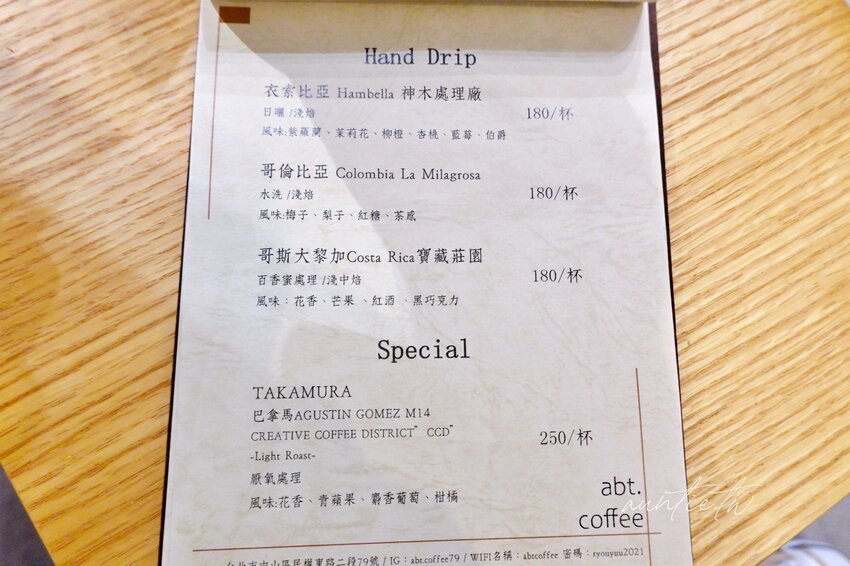 Hand Drip
衣索比亞 Hambella 神木處理廠
日曬 /淺焙
180/杯
風味:紫羅蘭、茉莉花、柳橙、杏桃、藍莓、伯爵
哥倫比亞 Colombia La Milagrosa
水洗 /淺焙
180/杯
風味:梅子、梨子、紅糖、茶感
哥斯大黎加Costa Rica寶藏莊園
百香蜜處理 /淺中焙
180/杯
風味：花香、芒果 、紅酒 、黑巧克力
Special
TAKAMURA
巴拿馬AGUSTIN GOMEZ M14
CREATIVE COFFEE DISTRICT”CCD”
250/杯
-Light Roast-
厭氧處理
風味:花香、青蘋果、麝香葡萄、柑橘
abt.
coffee
auntie.tw
台北市中山區民權東路二段79號 / IG：abt.coffee79 / WIFI名稱：abtcoffee 密碼：ryouyuu2021